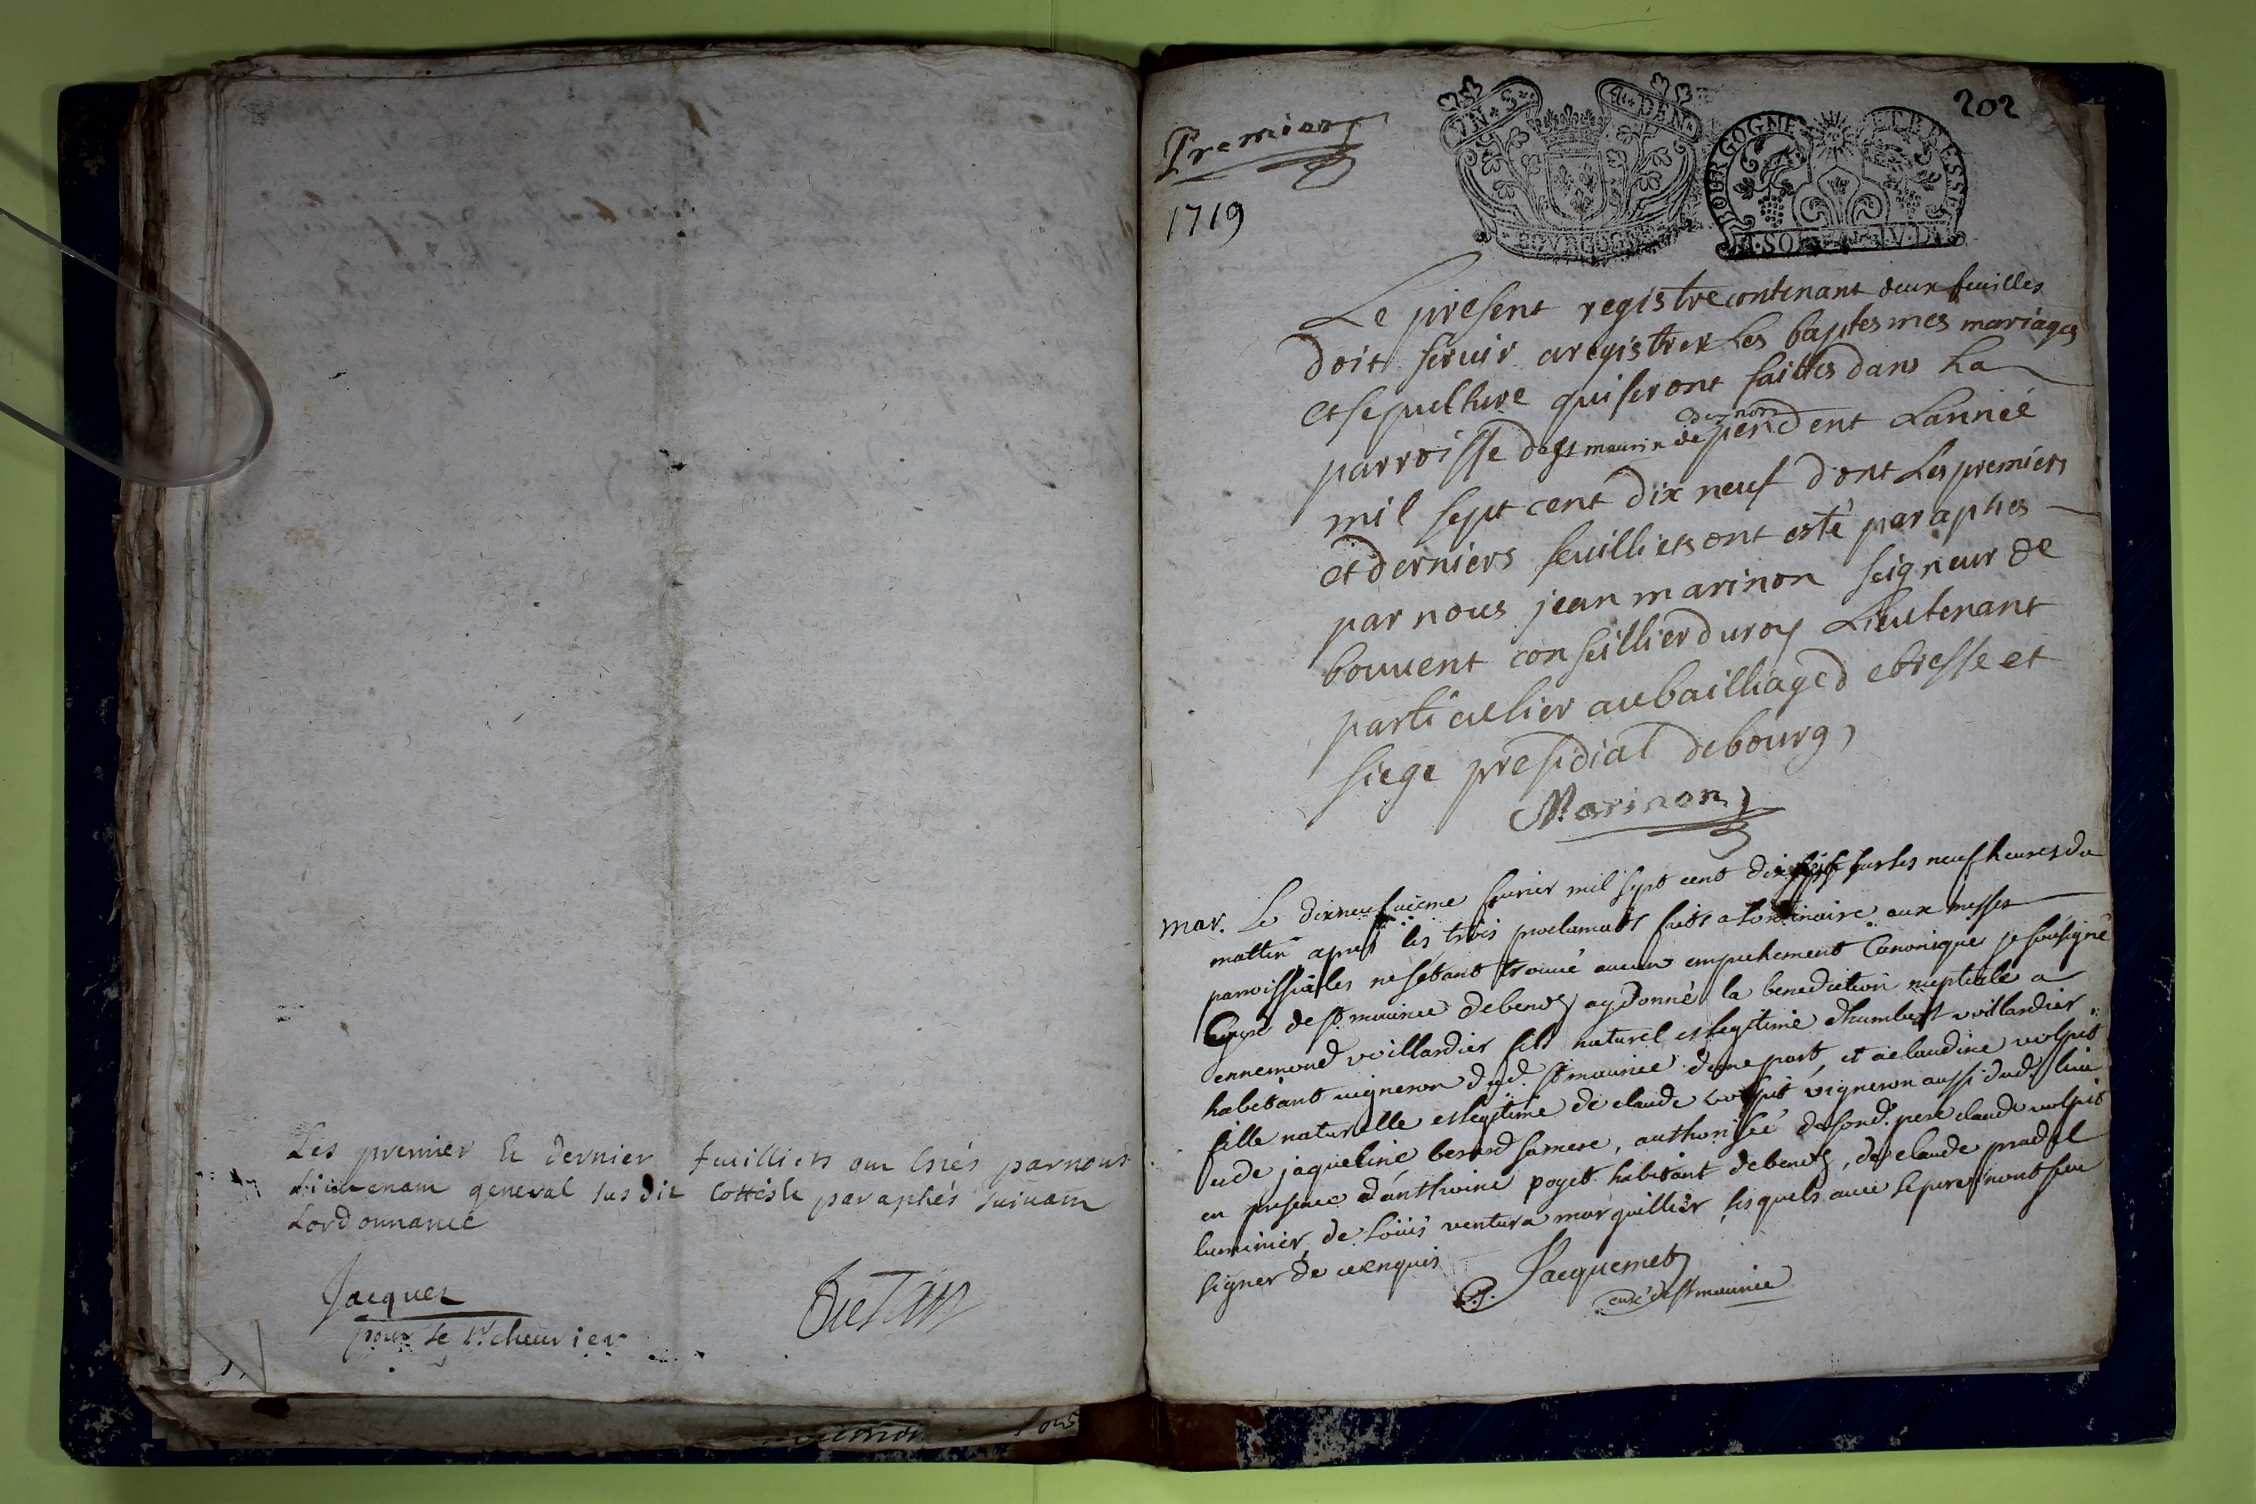 Les premier Et dernier feuilliets ont Estés par nous
Lieutenant general susdit Cottés Et paraphés suivant
Lordonnance
Jacquet
pour le Sr. cheuvier
Premier
1719
202
VN S
4 DEN
BOURGOGNE
BOURGOGNE ET BRESSE
Le present registre contenant deux feuilles
doit servir a registrer Les baptesmes mariages
et sepulture qui seront faittes dans La
parroisse de st maurix de pendent Lannéé
mil sept cent dix neuf dont Les premiers
et derniers feuilliets ont esté paraphes
par nous jean marinon seigneur de
bouvent conseillier du roy Lieutenant
particulier au bailliage de bresse et
siege presidial de bourg
Marinon
mar. Le dixneufuieme feurier mil sept cent dix sur les neuf heures du
mattin apres les trois proclamats faits a lordinaire aux messes
parroissiales ne sétant trouué aucun empechement Canonique je sousigné
Curé de st maurice debenos ay donné la benediction nuptiale a
ennemond voillardier fils naturel et legitime dhumbert voillardier
habitant uigneron dud. st maurice dune part, et a claudine volpit
fille naturelle et legitime de claude volpit vigneron aussi dud. lieu
et de jaqueline berard sa mere, authorisée de sond. pere claude volpit
en presence dánthoine poget habitant debenos, de claude pradel
luminier, de Loüis ventura marguillier lesquels auec le pere nont sceu
signer de ce enquis
Jacquemet
curé de st maurice